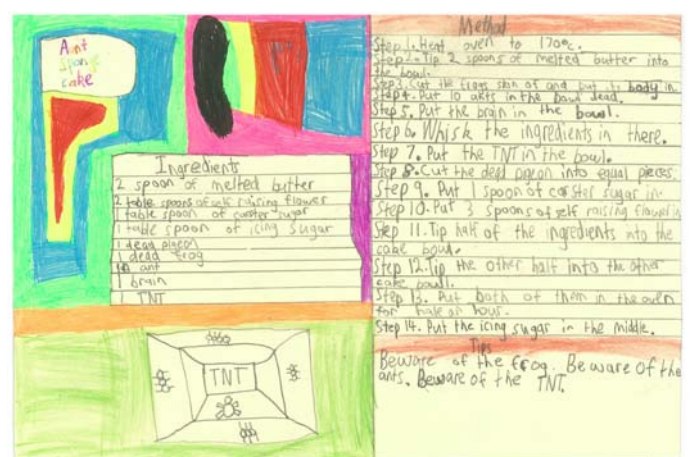 Aunt
Sponge
cake
Ingredients
2 spoon of melted butter
2 table spoons of self raising flower
1 table spoon of caster sugar
1 table spoon of icing sugar
1 dead pigeon
1 dead frog
10 ant
1 brain
1 TNT
TNT
Method
Step 1. Heat oven to 170°c.
Step 2. Tip 2 spoons of melted butter into
the bowl.
Step 3. Cut the frogs skin of and put its body in.
Step 4. Put 10 ants in the bowl dead.
Step 5. Put the brain in the bowl.
Step 6. Whisk the ingredients in there.
Step 7. Put the TNT in the bowl.
Step 8. Cut the dead pigeon into equal pieces.
Step 9. Put 1 spoon of caster sugar in.
Step 10. Put 3 spoons of self raising flower in
Step 11. Tip half of the ingredients into the
cake bowl.
Step 12. Tip the other half into the other
cake bowl.
Step 13. Put both of them in the oven
for half an hour.
Step 14. Put the icing sugar in the middle.
Tips
Beware of the frog. Beware of the
ants. Beware of the TNT.